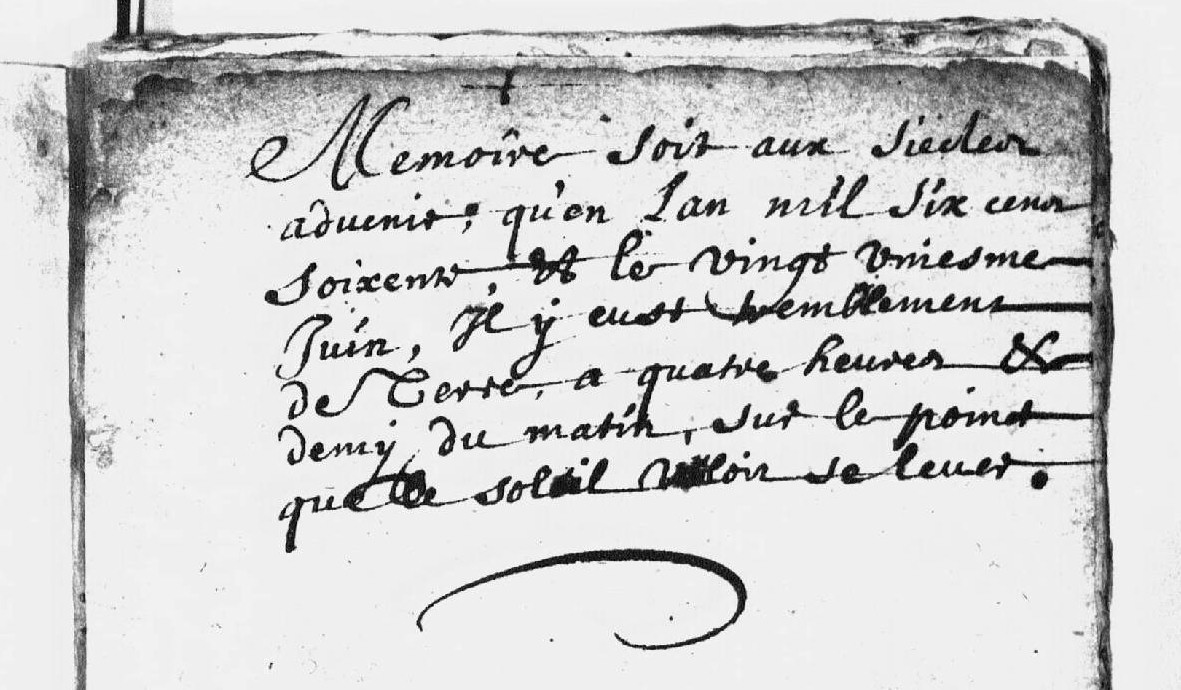 Memoire soit aux siecles
advenir, qu'en Lan mil six cens
soixente, et le vingt vniesme
Juin, Il y eust tremblement
de Terre, a quatre heures &
demy du matin, sur le poinct
que le soleil vouloir se lever.